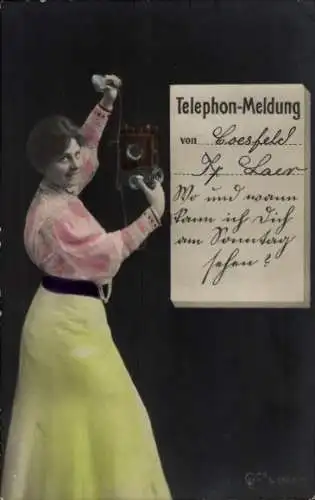 Telephon-Meldung
von Coesfeld
Laer
Wo und wann
kann ich Dich
am Sonntag
sehen?